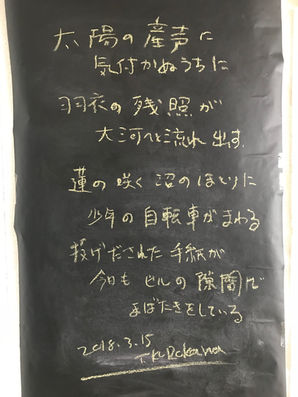 太陽の産声に
気付かぬうちに
羽衣の残照が
大河へと流れ出す
蓮の咲く沼のほとりに
少年の自転車がまわる
投げだされた手紙が
今日もビルの隙間で
まばたきをしている
2018.3.15